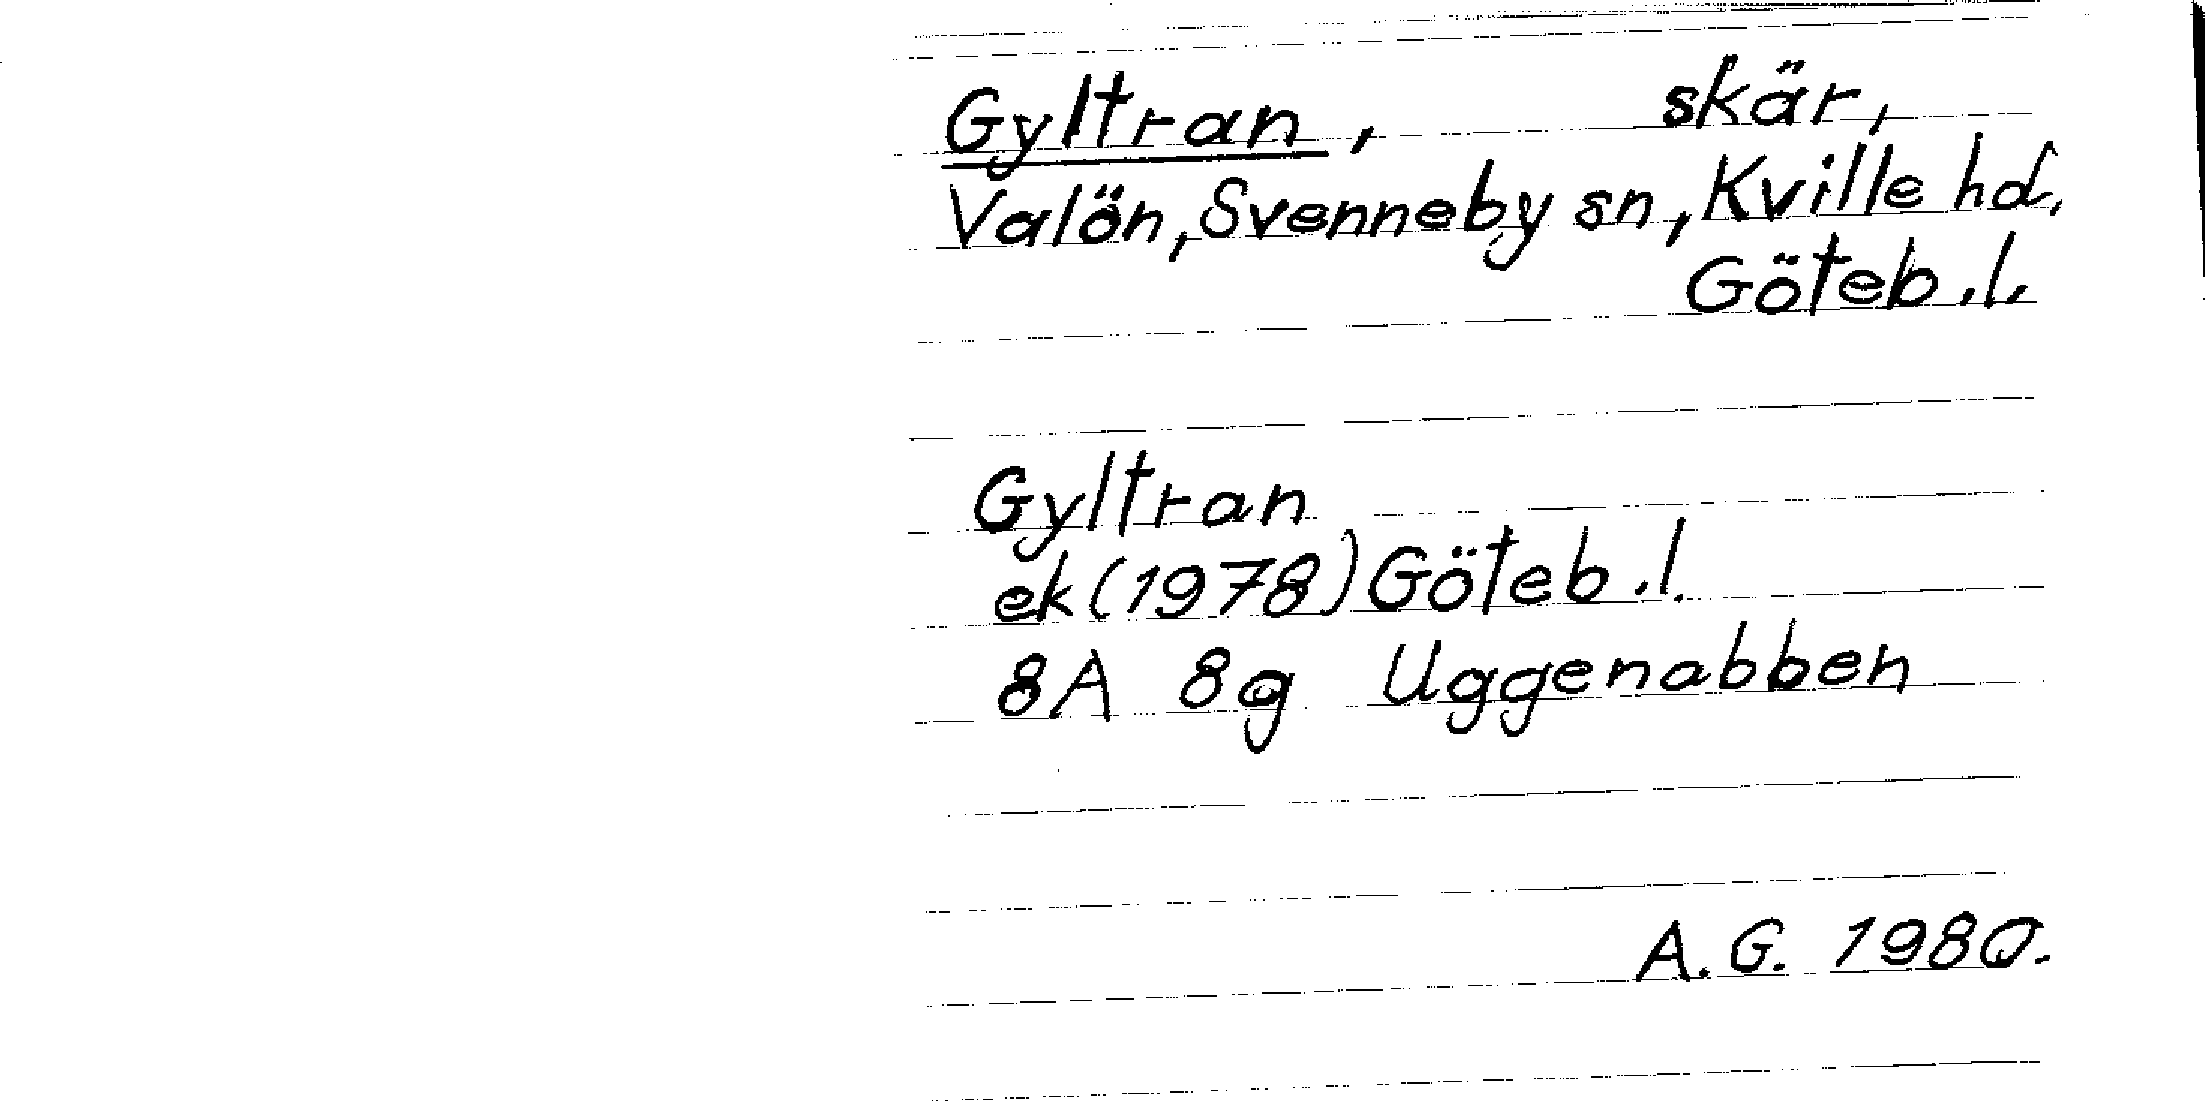 Gyltran, skär,
Valön, Svenneby sn, Kville hd,
Göteb.l.
Gyltran
ek (1978) Göteb.l.
8A 8g Uggenabben
A.G. 1980.